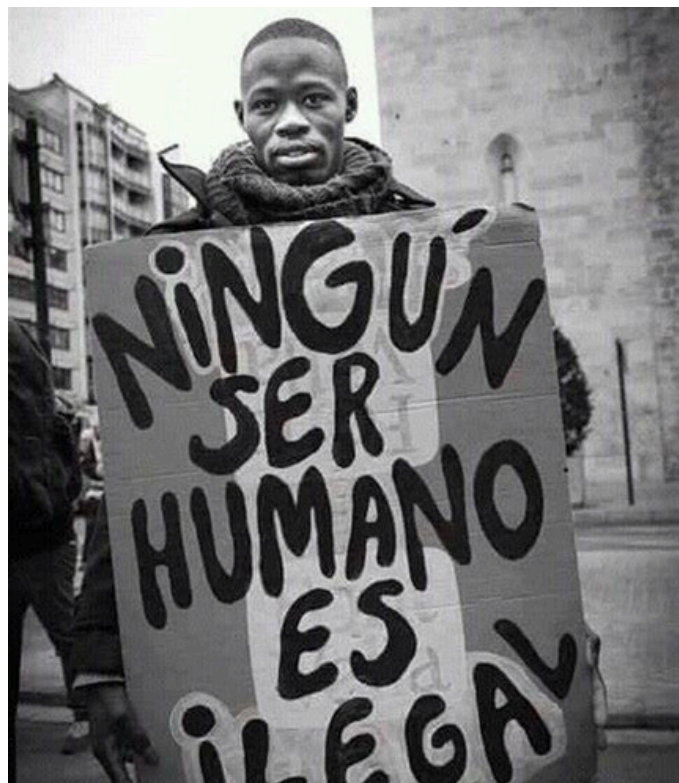 NiNGÚN
SER
HUMANO
ES
iLEGAL